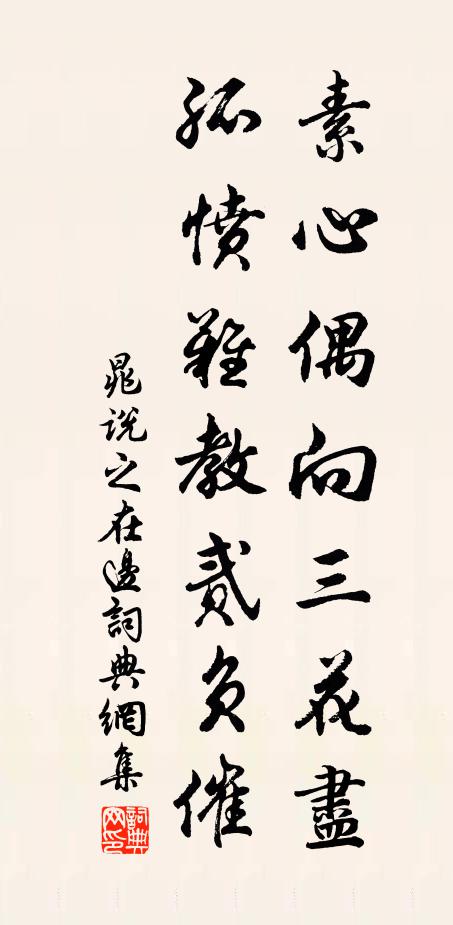 素心偶向三花盡
孤憤難教貳負催
晁說之在邊詞典網集
詞典網印